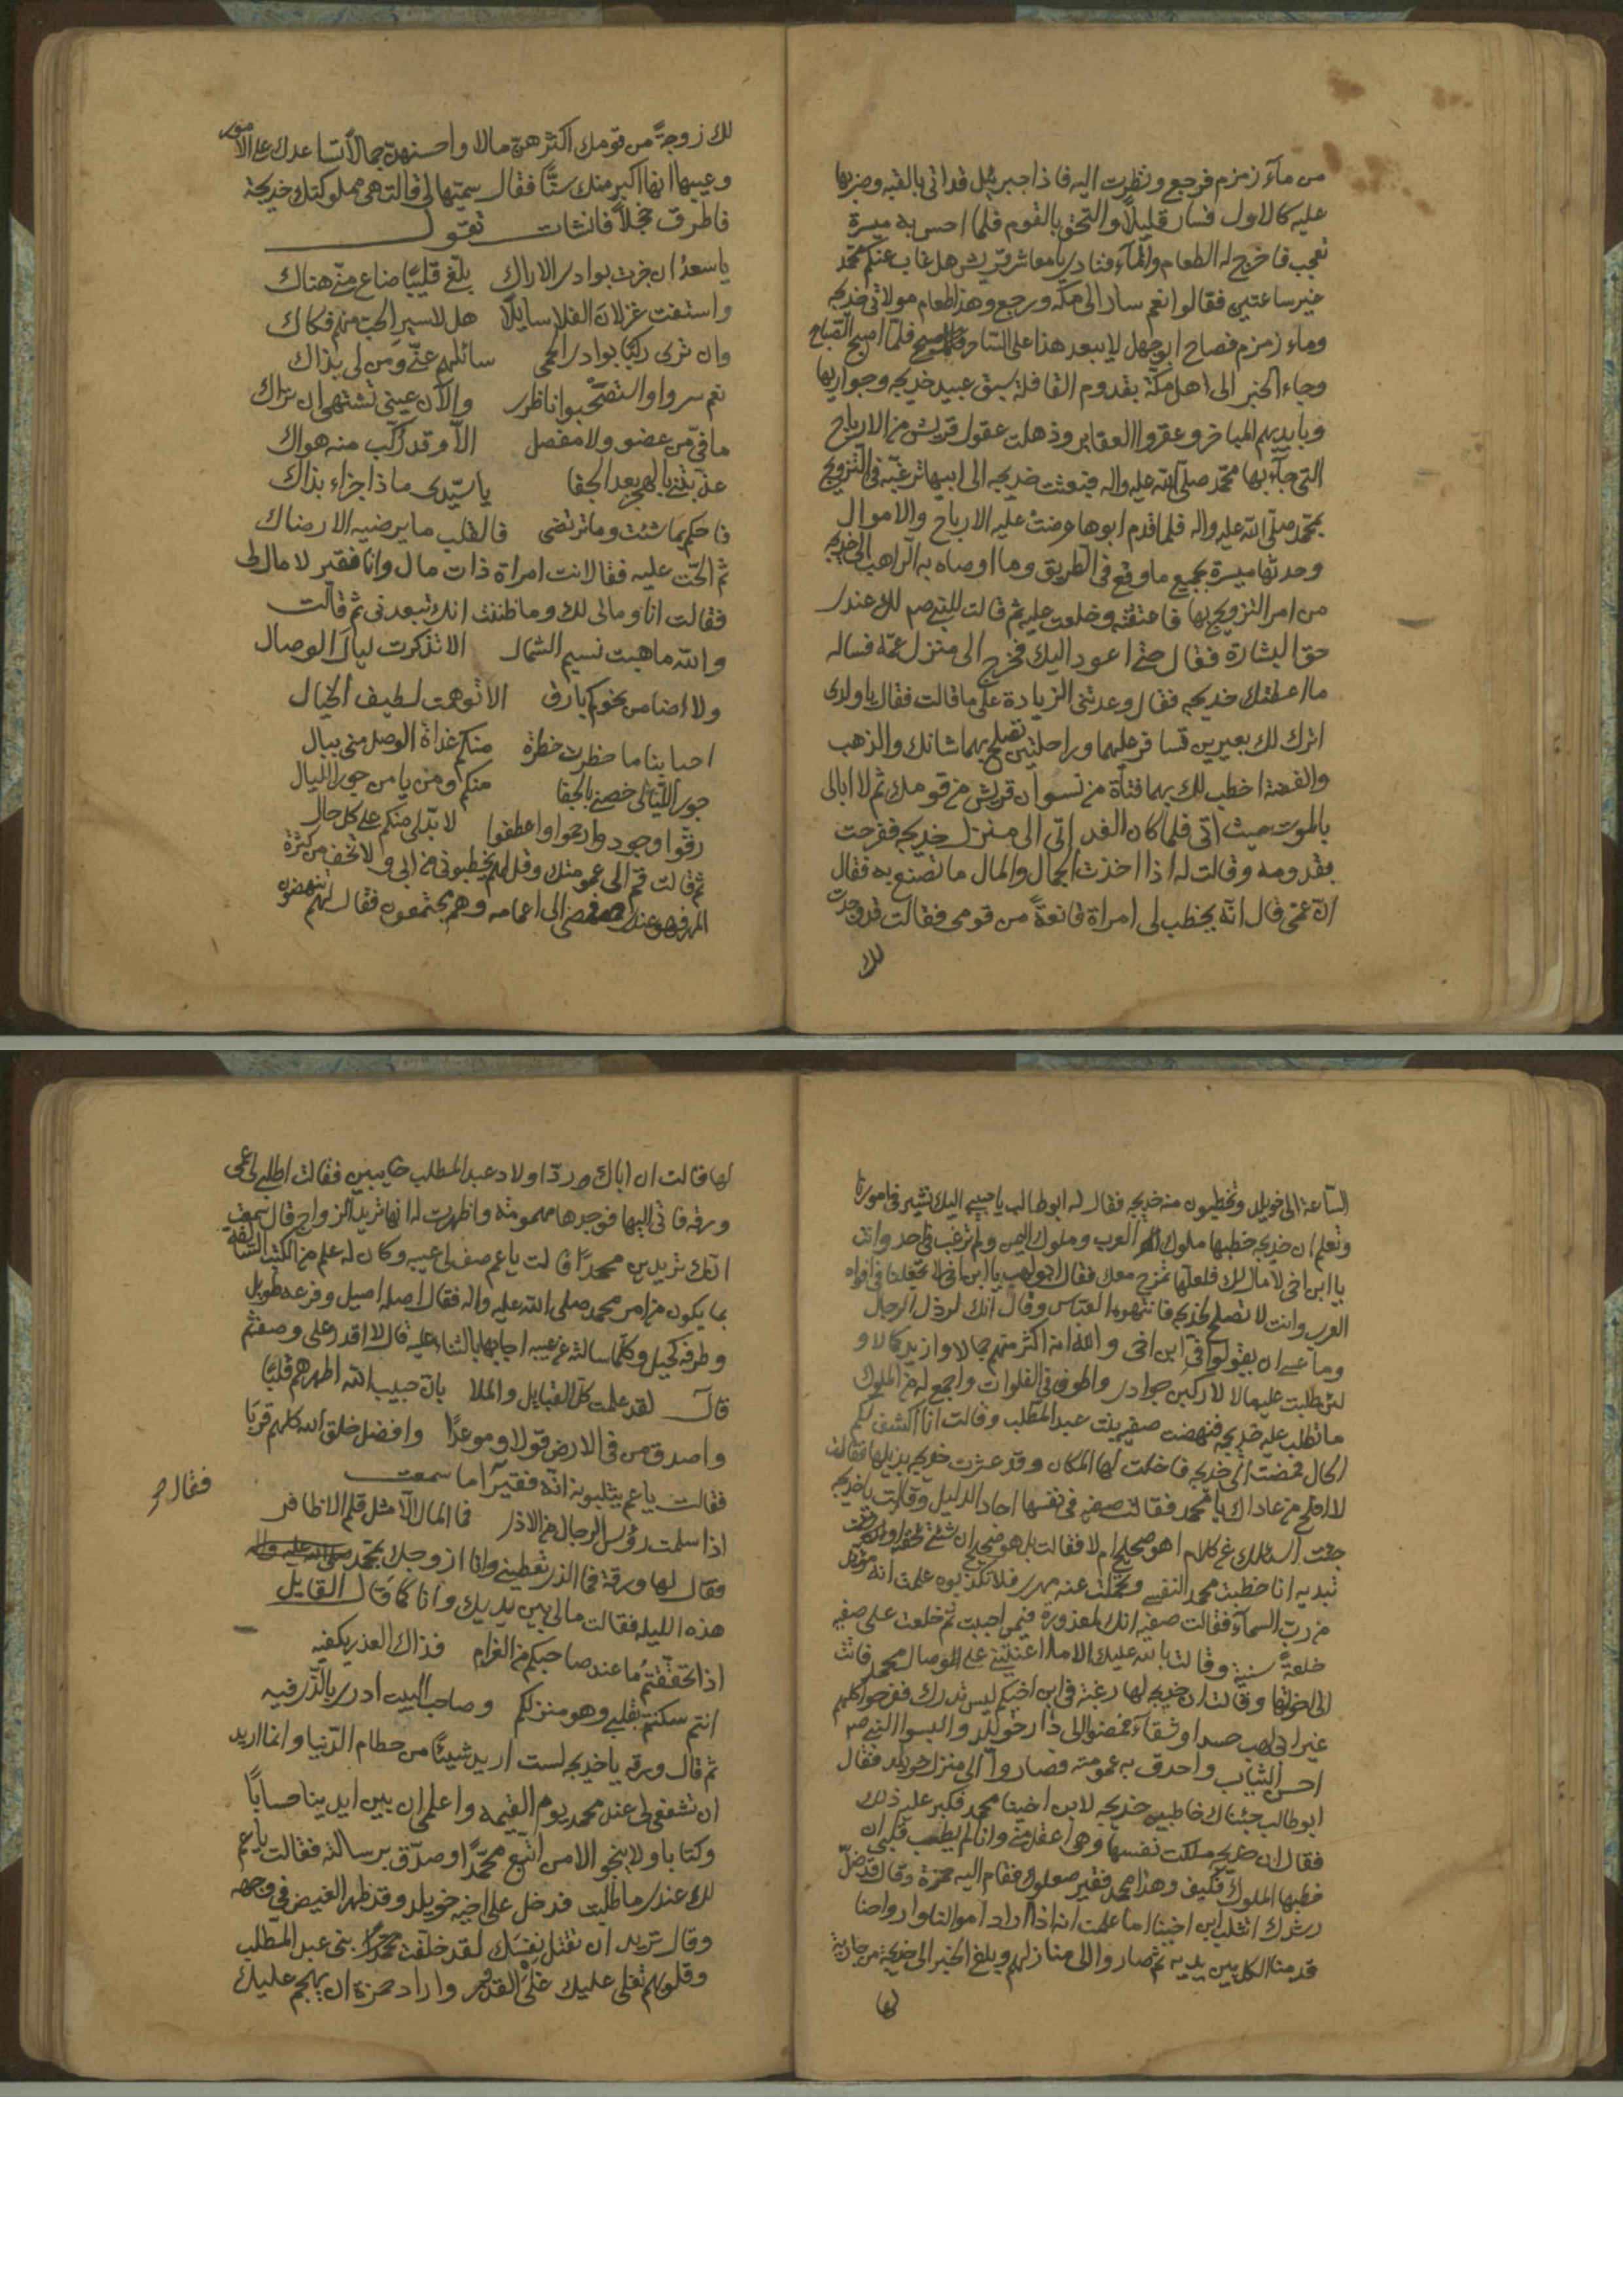 من مآء زمزم فرجع ونظرت اليه فاذا جبرئيل قد اتى بالقبه وضربها
عليه كالاول فسار قليلاً والتحق بالقوم فلما احس به ميسرة
تعجب فاخرج له الطعام والمآء فنادى يا معاشر قريش هل غاب عنكم محمّد
غير ساعتين فقالوا نعم سار الى مكه ورجع وهذا طعام مولاتى خديجه
وماء زمزم فصاح ابوجهل لا يبعد هذا على الساحر فلمّا اصبح الصباح
وجاء الخبر الى اهل مكة بقدوم القافلة سبق عبيد خديجه وجواريها
وبايديهم المباخر وعقروا العقاير وذهلت عقول قريش من الارباح
التى جآء بها محمّد صلى الله عليه واله فبعثت خديجه الى ابيها ترغبه فى التزويج
بمحمّد صلى الله عليه واله فلما قدم ابوها عرضت عليه الارباح والاموال
وحدثها ميسرة بجميع ما وقع فى الطريق وما اوصاه به الراهب الى خديجه
من امر التزويج بها فاعتقته وخلعت عليه ثم قالت للنبى صم لك عندى
حق البشارة فقال حتى اعود اليك فخرج الى منزل عمّه فساله
ما اعطتك خديجه فقال وعدتنى الزيادة على ما قالت فقال يا ولدى
اترك لك بعيرين تسافر عليهما وراحلتين تصلح بهما شانك والذهب
والفضة اخطب لك بهما فتاة من نسوان قريش من قومك ثم لا ابالى
بالموت حيث اتى فلما كان الغد اتى الى منزل خديجه ففرحت
بقدومه وقالت له اذا اخذت الجمال والمال ما تصنع به فقال
انّ عمّى قال انّه يخطب لى امراة قانعةً من قومى فقالت قد وجدت
لك
لك زوجةً من قومك اكثرهنّ مالا واحسنهنّ جمالاً تساعدك على الامور
وعيبها انها اكبر منك سنًّا فقال سميّتها لى قالت هى مملوكتك خديجة
فاطرق خجلاً فانشات تقول
يا سعد ان جزت بوادى الاراك بلّغ قليبًا ضاع منّى هناك
واستفت غزلان الفلا سايلًا هل لاسير الحبّ منهم فكاك
وان ترى ركبًا بوادى الحمى سائلهم عنّى ومن لى بذاك
نعم سروا واستصحبوا ناظرى والآن عينى تشتهى ان تراك
ما فىّ من عضو ولا مفصل الاّ وقد رُكّب منه هواك
عذّبتنى بالهجر بعد الجفا يا سيّدى ماذا جزاء بذاك
فاحكم بما شئت وما ترتضى فالقلب ما يرضيه الا رضاك
ثم الحّت عليه فقال انت امراة ذات مال وانا فقير لا مال لى
فقالت انا ومالى لك وما ظننت انك تبعدنى ثم قالت
والله ما هبت نسيم الشمال الا تذكرت ليال الوصال
ولا اضا من نحوكم بارق الا توهمت لطيف الخيال
احبابنا ما خطرت خطرة منكم غداة الوصل منى ببال
جور الليالى خصنى بالجفا منكم ومن يامن جور الليال
رقّوا وجودوا وارحموا واعطفوا لا بدّ لى منكم على كل حال
ثم قالت قم الى عمومتك وقل لهم يخطبونى من ابى ولا تخف من كثرة
المهر فهو عندى فمضى الى اعمامه وهم مجتمعون فقال لهم تنهضون
السّاعة الى خويلد وتخطبون منه خديجه فقال له ابوطالب يا حبيبى اليك نشير فى امورنا
وتعلم ان خديجه خطبها ملوك العرب وملوك اليمن ولم ترغب فى احد وانت
يا ابن اخى لا مال لك فلعلها تمزح معك فقال ابولهب يا ابن اخى لا تجعلنا فى افواه
العرب وانت لا تصلح لخديجه فانتهره العبّاس وقال انك لرذل الرجال
وما عسى ان يقولوا فى ابن اخى والله انه اكثر منهم جمالا وازيد كمالا و
لئن طلبت عليه مالا لاركبن جوادى واطوف فى الفلوات واجمع له من الملوك
ما تطلب عليه خديجه فنهضت صفيه بنت عبد المطّلب وقالت انا اكشف لكم
الحال فمضت الى خديجه فاخلت لها المكان وقد عثرت خديجه بذيلها فقالت
لا افلح من عاداك يا محمد فقالت صفيه فى نفسها اجاد الدليل وقالت يا خديجه
جئت اسئلك عن كلام اهو صحيح ام لا فقالت بل هو صحيح ان شئت تخفيه او
تبديه انا خطبت محمد النفسى وتحملت عنه مهرى فلا تكذبوه علمت انه مؤيد
من ربّ السمآء فقالت صفيه انك لمعذورة فيمن احببت ثم خلعت على صفيه
خلعةً سنية وقالت بالله عليك الا ما اعنتينى على الوصال بمحمد فاتت
الى اخوتها وقالت ان خديجه لها رغبة فى ابن اخيكم ليس تدرك ففرحوا كلهم
غير ابى لهب حسدا وشقآء فمضوا الى دار خويلد والبسوا النبى صم
احسن الثياب واحدق به عمومته فصاروا الى منزل خويلد فقال
ابوطالب جئناك خاطبين خديجه لابن اخينا محمد فكبر عليه ذلك
فقال ان خديجه ملكت نفسها وهى اعقل منى وانا لم يطب قلبى ان
خطبها الملوك فكيف وهذا محمد فقير صعلوك فقام اليه حمزة وقال قد ضلّ
رشدك اتثلب ابن اخينا اما علمت انه اذا اراد اموالنا وارواحنا
قدمنا الكل بين يديه ثم صاروا الى منازلهم وبلغ الخبر الى خديجه من جارية
لها
لها قالت ان اباك ردّ اولاد عبد المطلب خايبين فقالت اطلبى لى عمى
ورقه فاتى اليها فوجدها مهمومة واظهرت له انها تريد الزواج قال سمعت
انك تريدين محمدًا قالت يا عم صف لى عيبه وكان له علم من الكتب السّالفه
بما يكون من امر محمد صلى الله عليه واله فقال اصله اصيل وفرعه طويل
وطرفه كحيل وكلّما سالته عن عيبه اجابها بالثناء عليه قال لا اقدر على وصفه ثم
قال لقد علمت كلّ القبايل والملا بانّ حبيب الله اطهرهم قلبًا
واصدق من فى الارض قولا وموعدًا وافضل خلق الله كلهم قربًا
فقالت يا عم يثلبونه انّه فقير اما سمعت
اذا سلمت رؤس الرجال من الاذى فما المال الاّ مثل قلم الاظافر
فقال لها ورقة فما الذى تعطينى وانا ازوجك بمحمّد صلى الله عليه واله
هذه الليله فقالت مالى بين يديك وانا كما قال القايل
اذا تحققتم ما عند صاحبكم من الغرام فذاك العذر يكفيه
انتم سكنتم بقلبى وهو منزلكم وصاحب البيت ادرى بالّذى فيه
ثم قال ورقه يا خديجه لست اريد شيئًا من حطام الدّنيا وانما اريد
ان تشفعى لى عند محمد يوم القيمه واعلمى ان بين ايدينا حسابًا
وكتابا ولا ينجو الا من اتبع محمّدًا وصدّق برسالته فقالت يا عم
لك عندى ما طلبت فدخل على اخيه خويلد وقد ظهر الغيض فى وجهه
وقال تريد ان تقتل نفسك لقد خلفت محمدًا بنى عبد المطّلب
وقلوبهم تغلى عليك غلى القدور واراد حمزة ان يهجم عليك
فقال